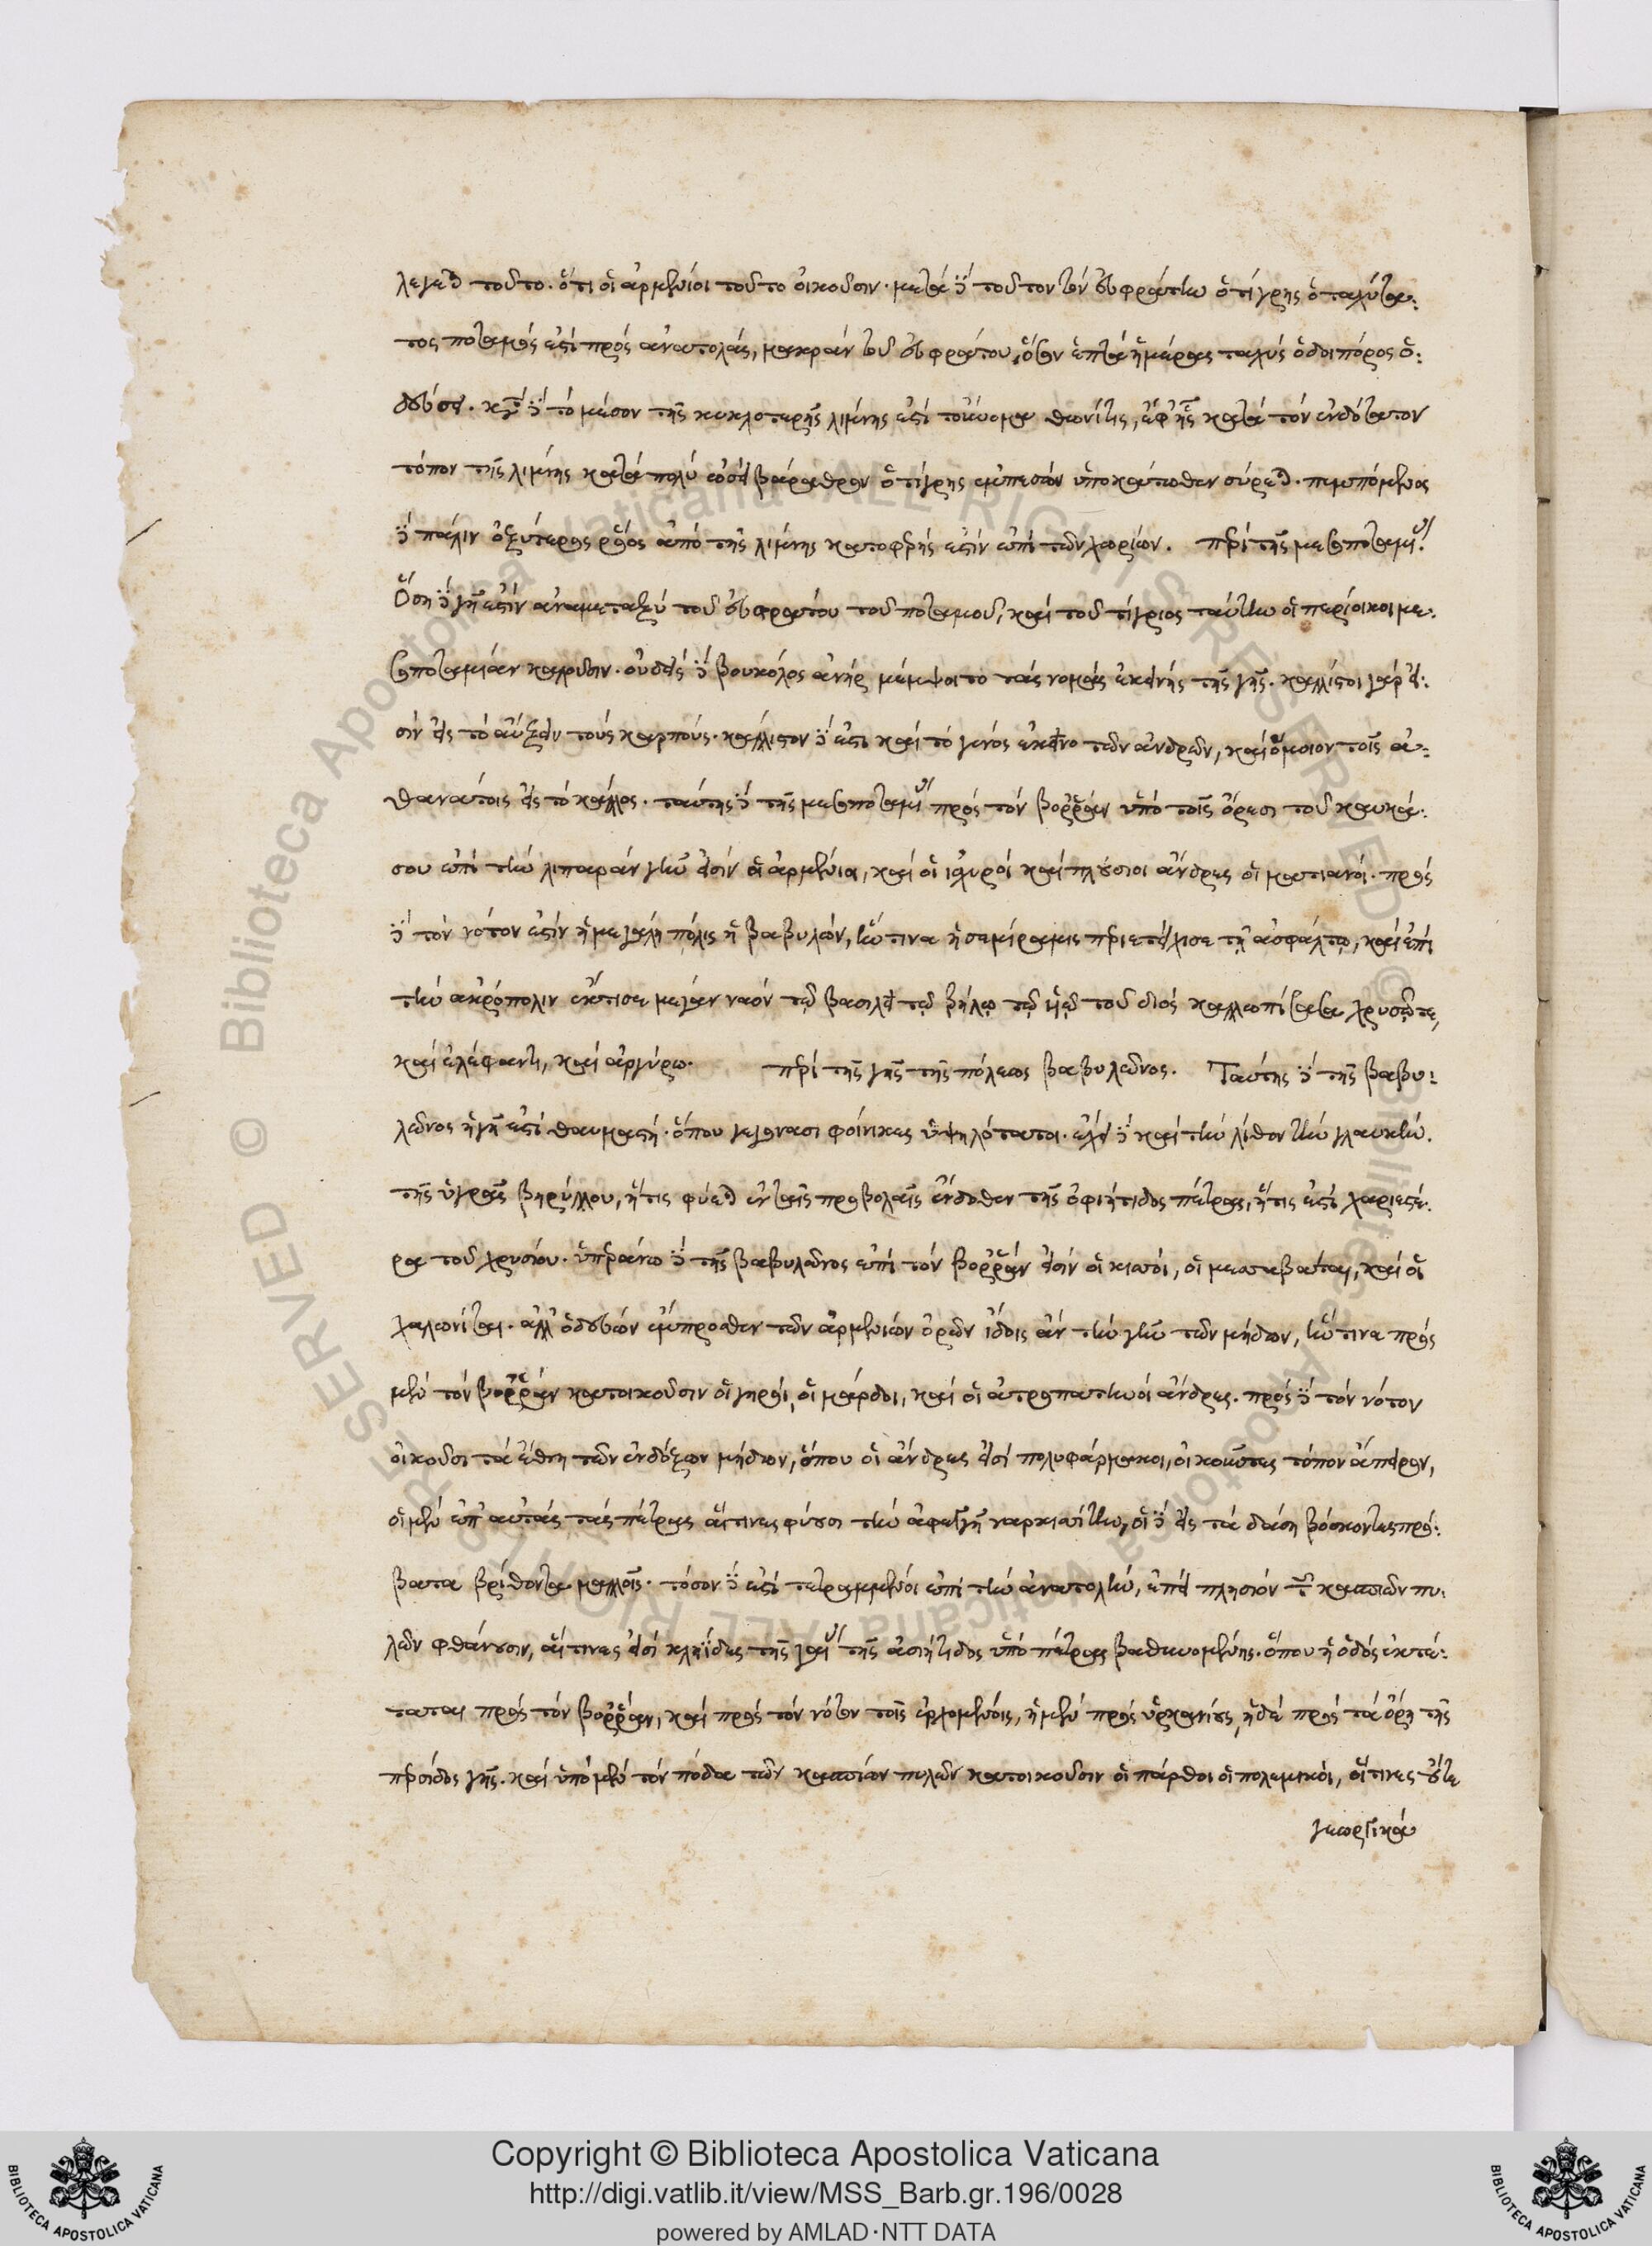 λέγεται τοῦτο. ὅτι οἱ ἀρμένιοι τοῦτο οἰκοῦσιν. μετὰ δὲ τοῦτον τὸν εὐφράτην ὁ τίγρης ὁ ταχύτα:
τος ποταμός ἐστι πρὸς ἀνατολάς, μακρὰν τοῦ εὐφράτου, ὅσον ἑπτὰ ἡμέρας ταχὺς ὁδοιπόρος ὁ:
δεύσει. κατὰ δὲ τὸ μέσον τῆς κυκλοτερῆς λίμνης ἐστὶ τοὔνομα θωνῖτις, ἐφ' ἧς κατὰ τὸν ἐνδότατον
τόπον τῆς λίμνης κατὰ πολὺ ὡσεὶ βάραθρον ὁ τίγρης ἐμπεσὼν ὑποκάτωθεν σύρεται. πεμπόμενος
δὲ πάλιν ὀξύτερος ῥόος ἀπὸ τῆς λίμνης κατωφερής ἐστιν ἐπὶ τῶν χωρίων. περὶ τῆς μεσοποταμίας.
Ὅση δὲ γῆ ἐστὶν ἀναμεταξὺ τοῦ εὐφράτου τοῦ ποταμοῦ, καὶ τοῦ τίγριος ταύτην οἱ περίοικοι με:
σοποταμίαν καλοῦσιν. οὐδεὶς δὲ βουκόλος ἀνὴρ μέμψοιτο τὰς νομὰς ἐκείνης τῆς γῆς. κάλλιστοι γὰρ εἰ:
σὶν εἰς τὸ αὔξειν τοὺς καρπούς. κάλλιστον δέ ἐστι καὶ τὸ γένος ἐκεῖνο τῶν ἀνδρῶν, καὶ ὅμοιον τοῖς ἀ:
θανάτοις εἰς τὸ κάλλος. ταύτης δὲ τῆς μεσοποταμίας πρὸς τὸν βορρᾶν ὑπὸ τοῖς ὄρεσι τοῦ καυκά:
σου ἐπὶ τὴν λιπαρὰν γῆν εἰσὶν οἱ ἀρμένιοι, καὶ οἱ ἰσχυροὶ καὶ πλούσιοι ἄνδρες οἱ ματιανοί. πρὸς
δὲ τὸν νότον ἐστὶν ἡ μεγάλη πόλις ἡ βαβυλών, ἥντινα ἡ σεμίραμις περιετείχισε τῇ ἀσφάλτῳ, καὶ ἐπὶ
τὴν ἀκρόπολιν ἔκτισε μέγαν ναὸν τῷ βασιλεῖ τῷ βήλῳ τῷ υἱῷ τοῦ διὸς καλλωπίσασα χρυσῷ τε,
καὶ ἐλέφαντι, καὶ ἀργύρῳ. περὶ τῆς γῆς τῆς πόλεως βαβυλῶνος. Ταύτης δὲ τῆς βαβυ:
λῶνος ἡ γῆ ἐστὶ θαυμαστή. ὅπου γεγόνασι φοίνικες ὑψηλότατοι. ἔχει δὲ καὶ τὴν λίθον τὴν γλαυκήν.
τῆς ὑγρᾶς βηρύλλου, ἥτις φύεται ἐν ταῖς προβολαῖς ἔνδοθεν τῆς ὀφιήτιδος πέτρας, ἥτις ἐστὶ χαριεστέ:
ρα τοῦ χρυσίου. ὑπεράνω δὲ τῆς βαβυλῶνος ἐπὶ τὸν βορρᾶν εἰσὶν οἱ κισσοί, οἱ μεσσαβάται, καὶ οἱ
χαλωνῖται. ἀλλ' ὁδεύων ἔμπροσθεν τῶν ἀρμενίων ὀρῶν ἴδοις ἂν τὴν γῆν τῶν μήδων, ἥντινα πρὸς
μὲν τὸν βορρᾶν κατοικοῦσιν οἱ γηροί, οἱ μάρδοι, καὶ οἱ ἀτροπατηνοὶ ἄνδρες. πρὸς δὲ τὸν νότον
οἰκοῦσι τὰ ἔθνη τῶν ἐνδόξων μήδων, ὅπου οἱ ἄνδρες εἰσὶ πολυφάρμακοι, οἰκοῦντες τόπον ἄπειρον,
οἱ μὲν ἐπ' αὐτὰς τὰς πέτρας αἵτινες φύουσι τὴν ἀφεγγῆ ναρκισσίτην, οἱ δὲ εἰς τὰ δάση βόσκοντες πρό:
βατα βρίθοντα μαλλοῖς. τόσον δέ εἰσι τετραμμένοι ἐπὶ τὴν ἀνατολήν, ἐπεὶ πλησίον τῶν κασπίων πυ:
λῶν φθάνουσιν, αἵτινες εἰσὶ κληῖδες τῆς γαίας τῆς ἀσιήτιδος ὑπὸ πέτρας βαθυνομένης. ὅπου ἡ ὁδὸς ἐκτέ:
ταται πρὸς τὸν βορρᾶν, καὶ πρὸς τὸν νότον τοῖς ἐρχομένοις, ἡ μὲν πρὸς ὑρκανίους, ἡ δὲ πρὸς τὰ ὄρη τῆς
περσίδος γῆς. καὶ ὑπὸ μὲν τὸν πόδα τῶν κασπίων πυλῶν κατοικοῦσιν οἱ πάρθοι οἱ πολεμικοί, οἵτινες οὔτε
γεωργικά
Copyright © Biblioteca Apostolica Vaticana
http://digi.vatlib.it/view/MSS_Barb.gr.196/0028
powered by AMLAD·NTT DATA